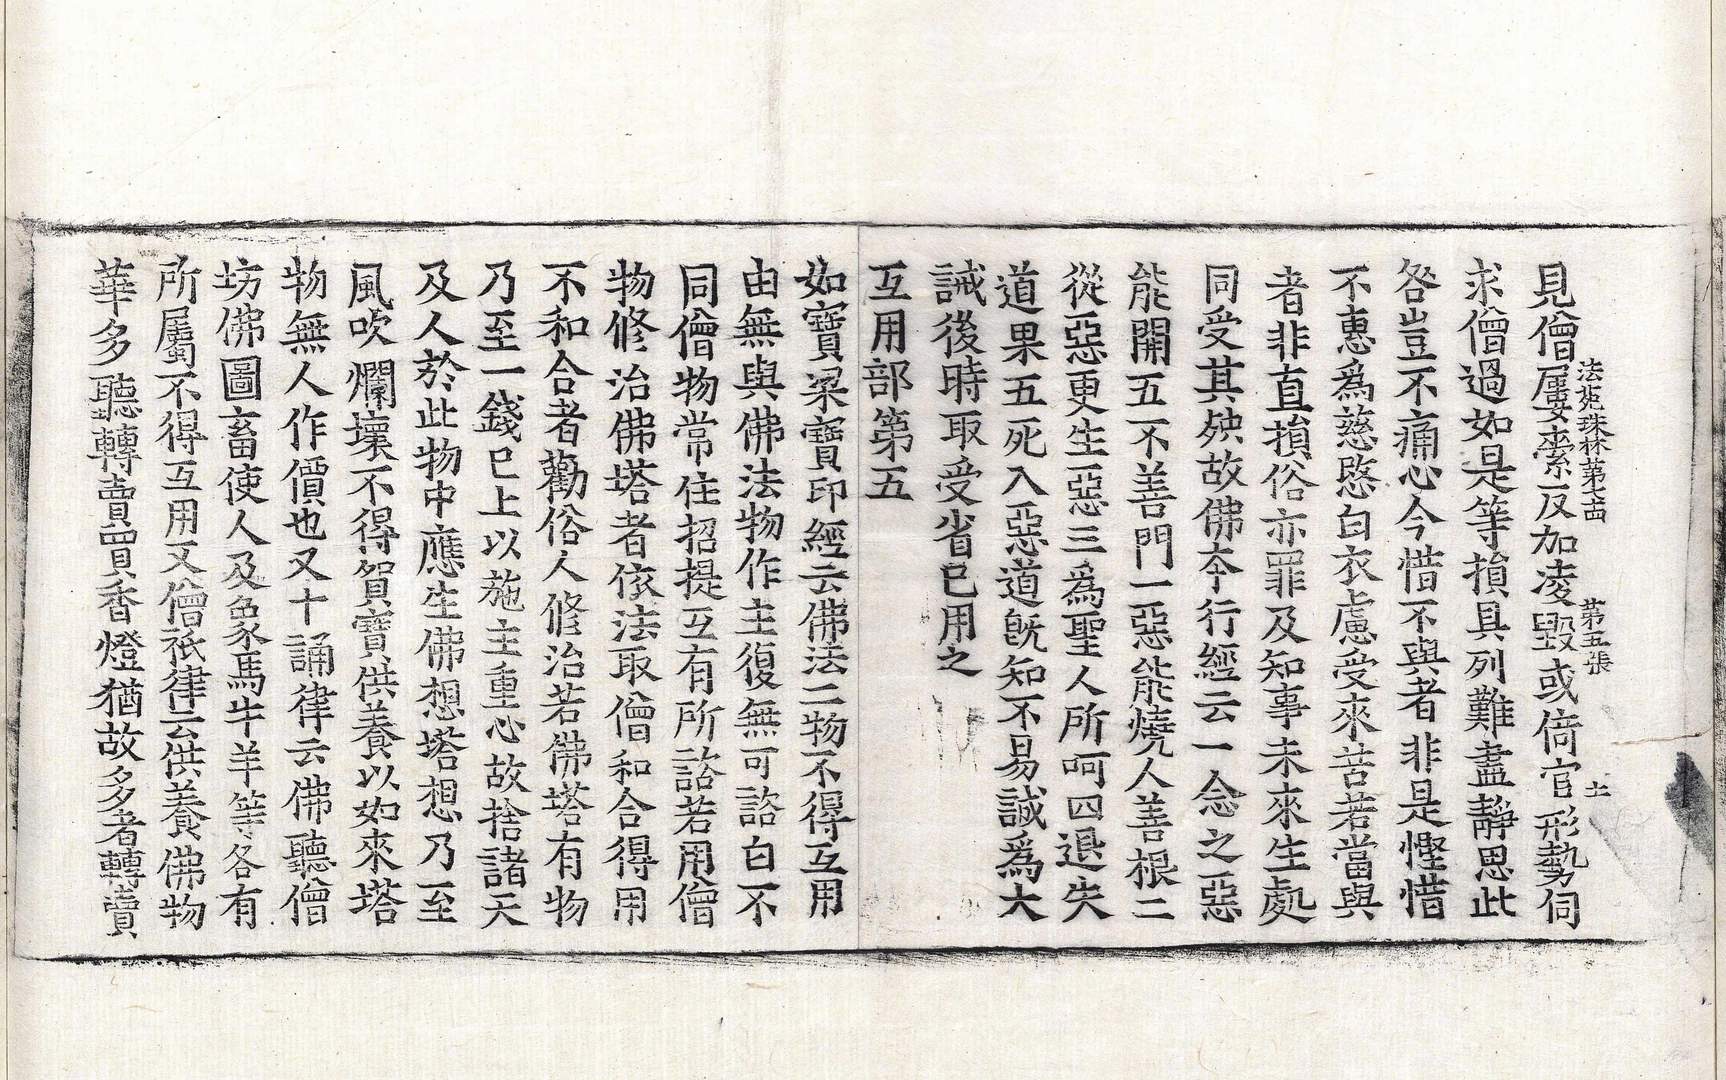 法苑珠林第七十四 第五張 土
見僧屢索反加凌毀或倚官形勢伺
求僧過如是等損具列難盡靜思此
咎豈不痛心今惜不與者非是慳惜
不惠爲慈愍白衣慮受來苦若當與
者非直損俗亦罪及知事未來生處
同受其殃故佛夲行經云一念之惡
能開五不善門一惡能燒人善根二
從惡更生惡三爲聖人所呵四退失
道果五死入惡道旣知不易誠爲大
誡後時取受省已用之
互用部第五
如寶梁寶印經云佛法二物不得互用
由無與佛法物作主復無可諮白不
同僧物常住招提互有所諮若用僧
物修治佛塔者依法取僧和合得用
不和合者勸俗人修治若佛塔有物
乃至一錢已上以施主重心故捨諸天
及人於此物中應生佛想塔想乃至
風吹爛壞不得貿寶供養以如來塔
物無人作價也又十誦律云佛聽僧
坊佛圖畜使人及象馬牛羊等各有
所屬不得互用又僧祇律云供養佛物
華多聽轉賣買香燈猶故多者轉賣